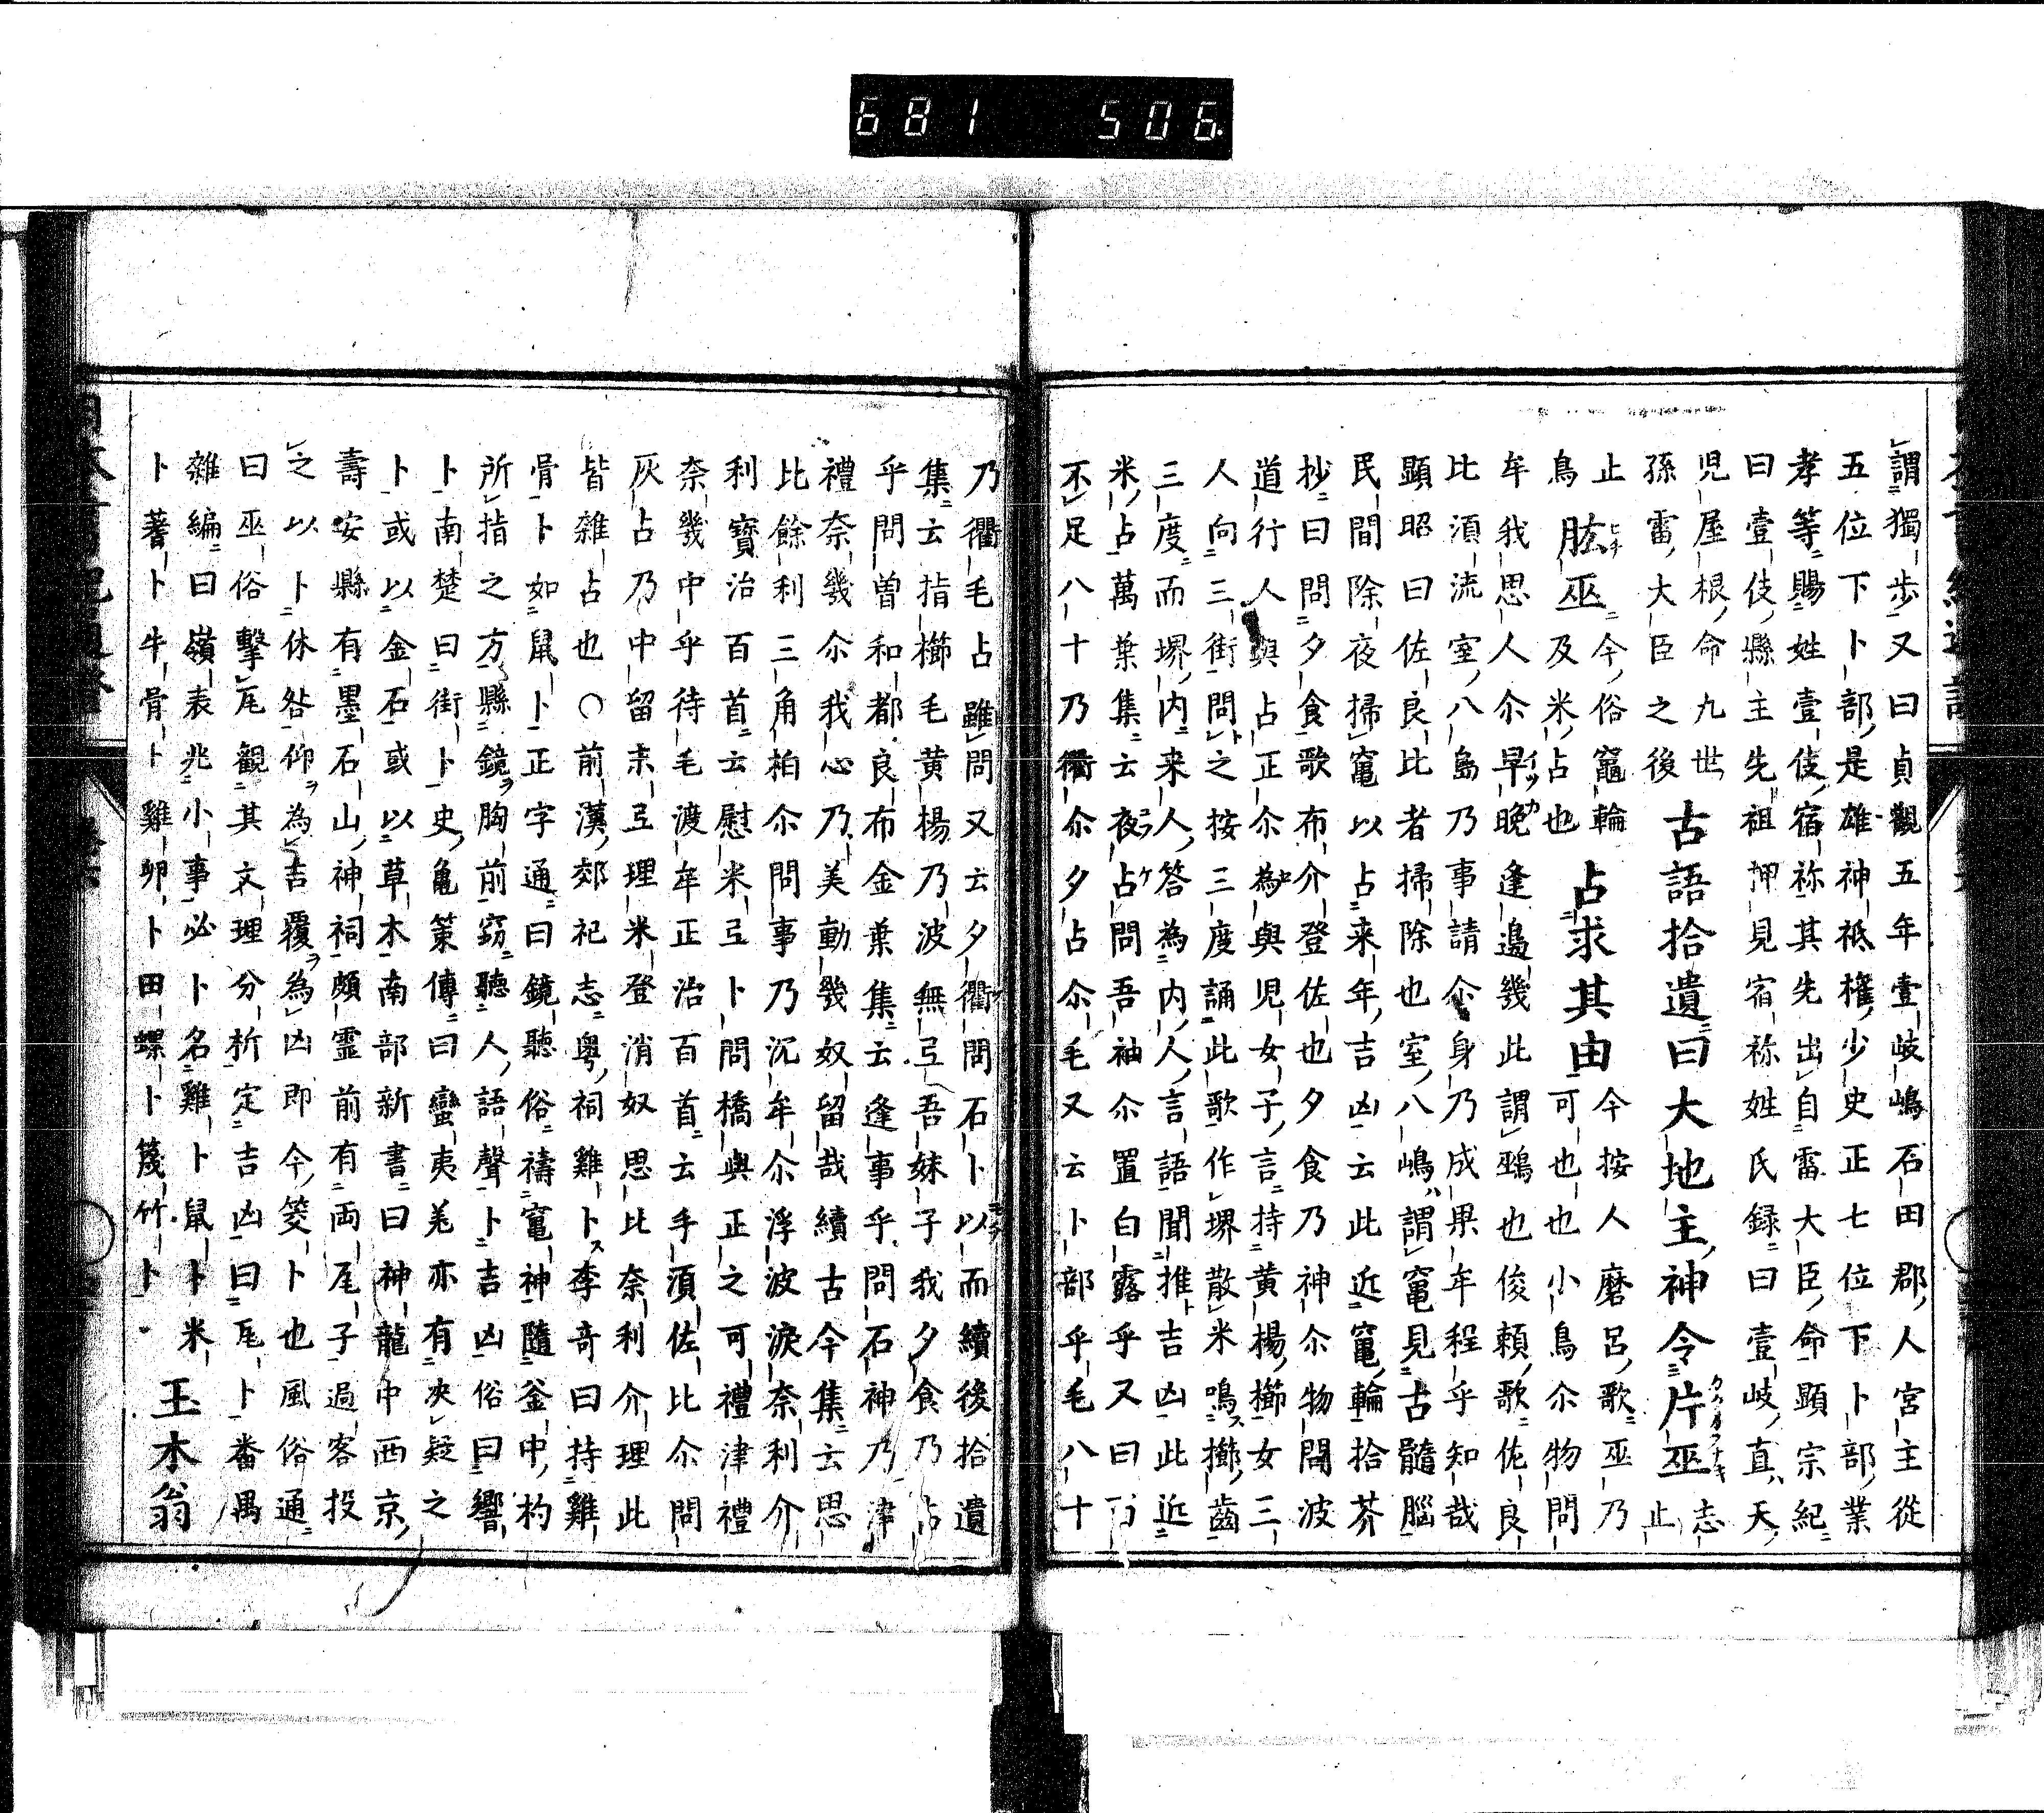 681 506
謂獨歩又曰貞觀五年壹岐嶋石田郡人宮主從
五位下卜部是雄神祇權少史正七位下卜部業
孝等賜姓壹伎宿祢其先出自雷大臣命顯宗紀
曰壹伎縣主先祖押見宿祢姓氏録曰壹岐直天
児屋根命九世
孫雷大臣之後 古語拾遺曰大地主神令片巫志止
止鳥肱巫今俗竈輪及米占也 占求其由今按人磨呂歌巫乃
可也也小鳥尒物問
牟我思人尒早晩逢邉幾此謂鵐也俊頼歌佐良
比湏流室八島乃事請尒身乃成果牟程乎知哉
顯昭曰佐良比者掃除也室八嶋謂竃見古髓腦
民間除夜掃竃以占来年吉凶云此近竃輪拾芥
抄曰問夕食歌布介登佐也夕食乃神尒物問波
道行人與占正尒為與児女子言持黄楊櫛女三
人向三街問之按三度誦此歌作堺散米鳴櫛齒
三度而堺内来人答為内人言語聞推吉凶此近
米占萬葉集云夜占問吾袖尒置白露乎又曰
不足八十乃衢尒夕占尒毛又云卜部乎毛八十
乃衢毛占雖問又云夕衢問石卜以而續後拾遺
集云指櫛毛黄楊乃波無弖吾妹子我夕食乃占
乎問曽和都良布金葉集云逢事乎問石神乃津
禮奈幾尒我心乃美動幾奴留哉續古今集云思
比餘利三角柏尒問事乃沉牟尒浮波涙奈利介
利寳治百首云慰米弖卜問橋與正之可禮津禮
奈幾中乎待毛渡牟正治百首云手湏佐比尒問
灰占乃中留末弖理米登消奴思比奈利介理此
皆雜占也○前漢郊祀志粤祠雞卜李奇曰持雞
骨卜如鼠卜正字通曰鏡聽俗禱竃神隨釜中杓
所指之方縣鏡胸前窈聽人語聲卜吉凶俗曰響
卜南楚曰街卜史龜策傳曰蠻夷羌亦有决疑之
卜或以金石或以草木南部新書曰神龍中西京
壽安縣有墨石山神祠頗霊前有兩瓦子過客投
之以卜休咎仰為吉覆為凶即今筊卜也風俗通
曰巫俗擊瓦觀其文理分析定吉凶曰瓦卜番禺
雜編曰嶺表兆小事必卜名雞卜鼠卜米
卜蓍卜牛骨卜雞卵卜田螺卜篾竹卜 王木翁